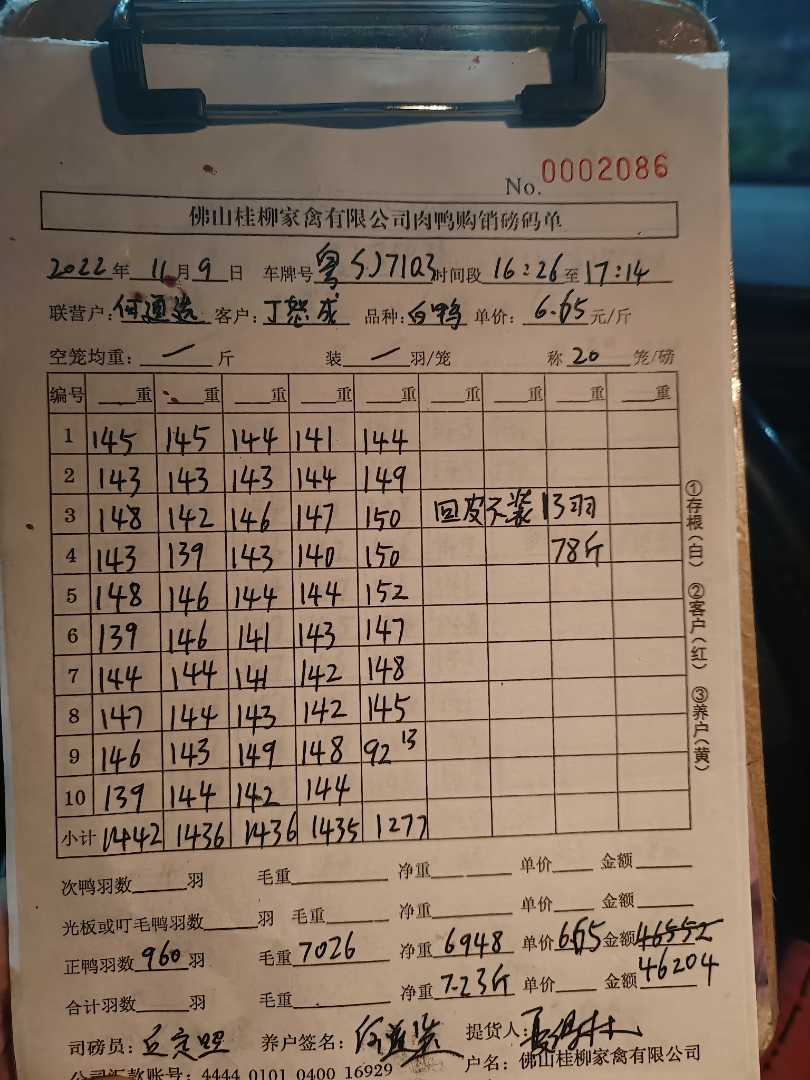 No. 0002086
佛山桂柳家禽有限公司肉鸭购销磅码单
2022年 11月9日 车牌号 粤SJ7103 时间段 16:26至17:14
联营户: 何通 客户: 丁恕成 品种: 白鸭 单价: 6.65元/斤
空笼均重: 一 斤 装 一 羽/笼 称 20 笼/磅
编号 重 重 重 重 重 重 重 重 重
1 145 145 144 141 144
2 143 143 143 144 149
3 148 142 146 147 150 回皮不装13羽
4 143 139 143 140 150 78斤
5 148 146 144 144 152
6 139 146 141 143 147
7 144 144 141 142 148
8 147 144 143 142 145
9 146 143 149 148 92 13
10 139 144 142 144
小计 1442 1436 1436 1435 1277
①存根(白) ②客户(红) ③养户(黄)
次鸭羽数 羽 毛重 净重 单价 金额
光板或叮毛鸭羽数 羽 毛重 净重 单价 金额
正鸭羽数 960 羽 毛重 7026 净重 6948 单价 6.65 金额 46552
合计羽数 羽 毛重 净重 7.23斤 单价 金额 46204
司磅员: 养户签名: 何 提货人:
公司汇款账号: 4444 0101 0400 16929 户名: 佛山桂柳家禽有限公司